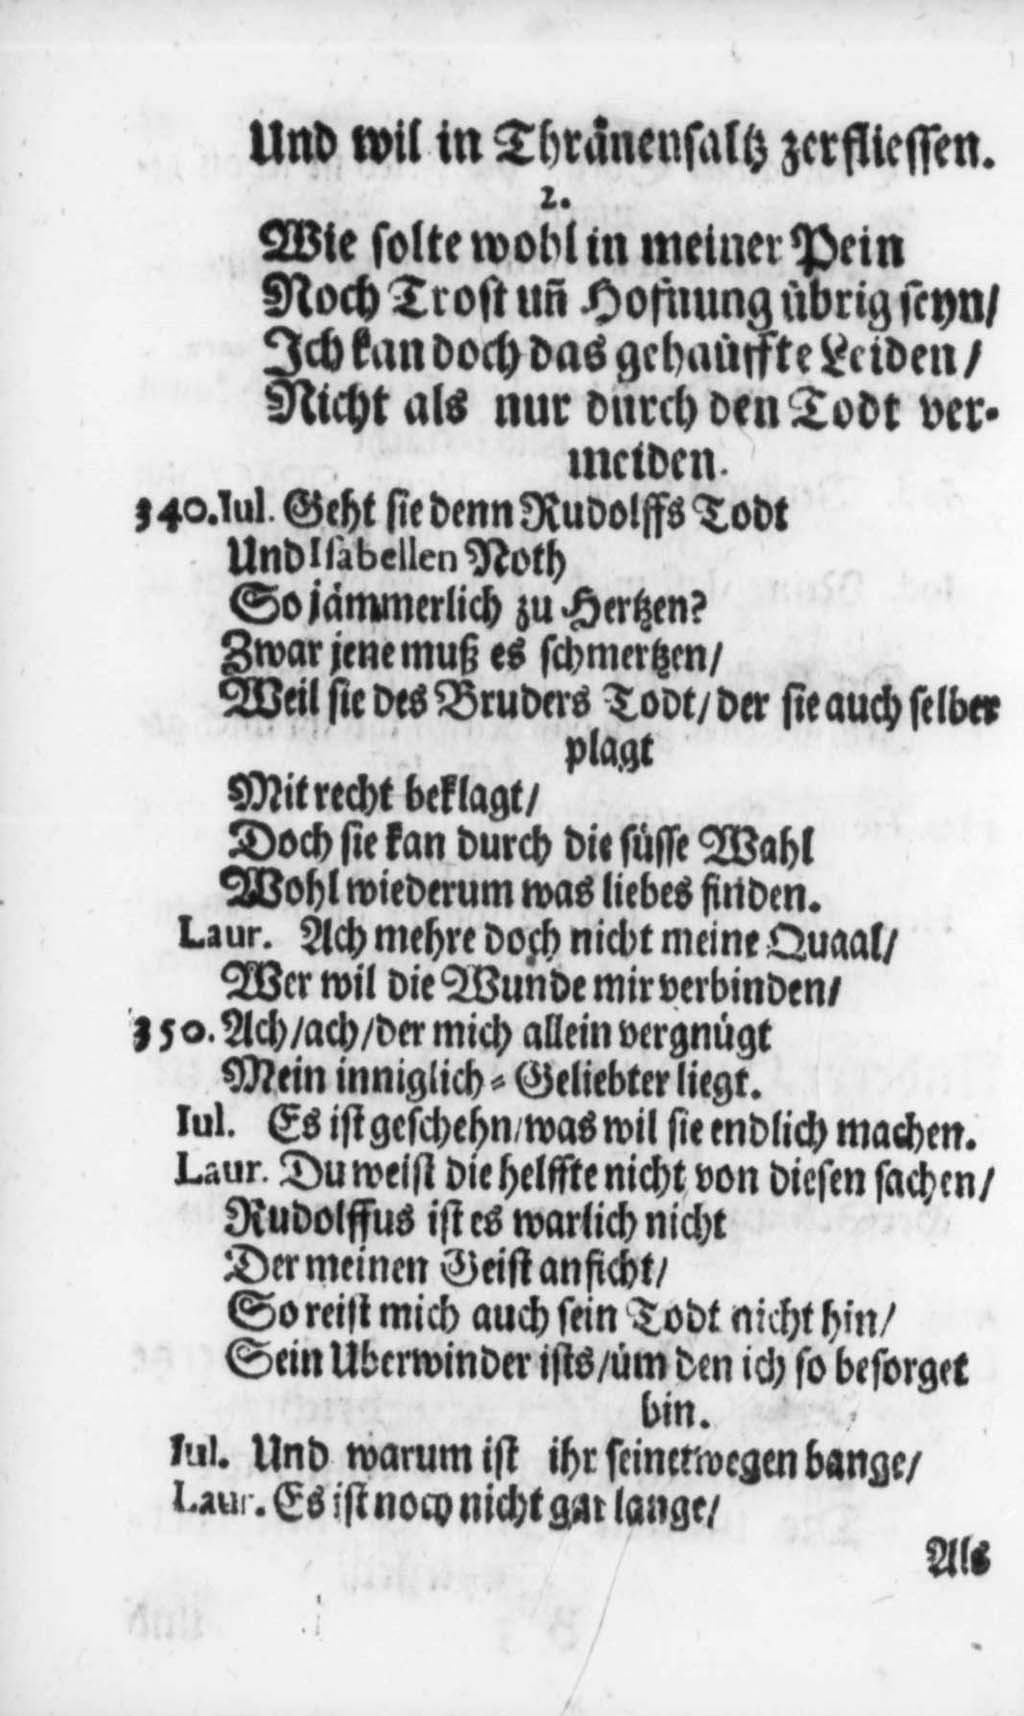 Und wil in Thrånensaltz zerfliessen.
2.
Wie solte wohl in meiner Pein
Noch Trost uñ Hofnung übrig seyn/
Ich kan doch das gehaüffte Leiden/
Nicht als nur durch den Todt ver-
meiden.
340. Iul. Geht sie denn Rudolffs Todt
Und Isabellen Noth
So jämmerlich zu Hertzen?
Zwar jene muß es schmertzen/
Weil sie des Bruders Todt/ der sie auch selber
plagt
Mit recht beklagt/
Doch sie kan durch die süsse Wahl
Wohl wiederum was liebes finden.
Laur. Ach mehre doch nicht meine Quaal/
Wer wil die Wunde mir verbinden/
350. Ach/ach/der mich allein vergnügt
Mein inniglich-Geliebter liegt.
Iul. Es ist geschehn/was wil sie endlich machen.
Laur. Du weist die helffte nicht von diesen sachen/
Rudolffus ist es warlich nicht
Der meinen Geist anficht/
So reist mich auch sein Todt nicht hin/
Sein Uberwinder ists/üm den ich so besorget
bin.
Iul. Und warum ist ihr seinetwegen bange/
Laur. Es ist noch nicht gar lange/
Als